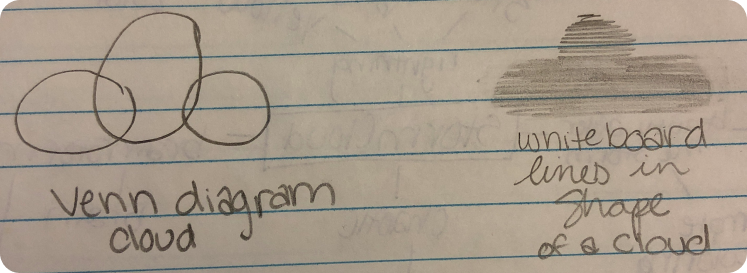 Venn diagram
cloud
whiteboard
lines in
shape
of a cloud